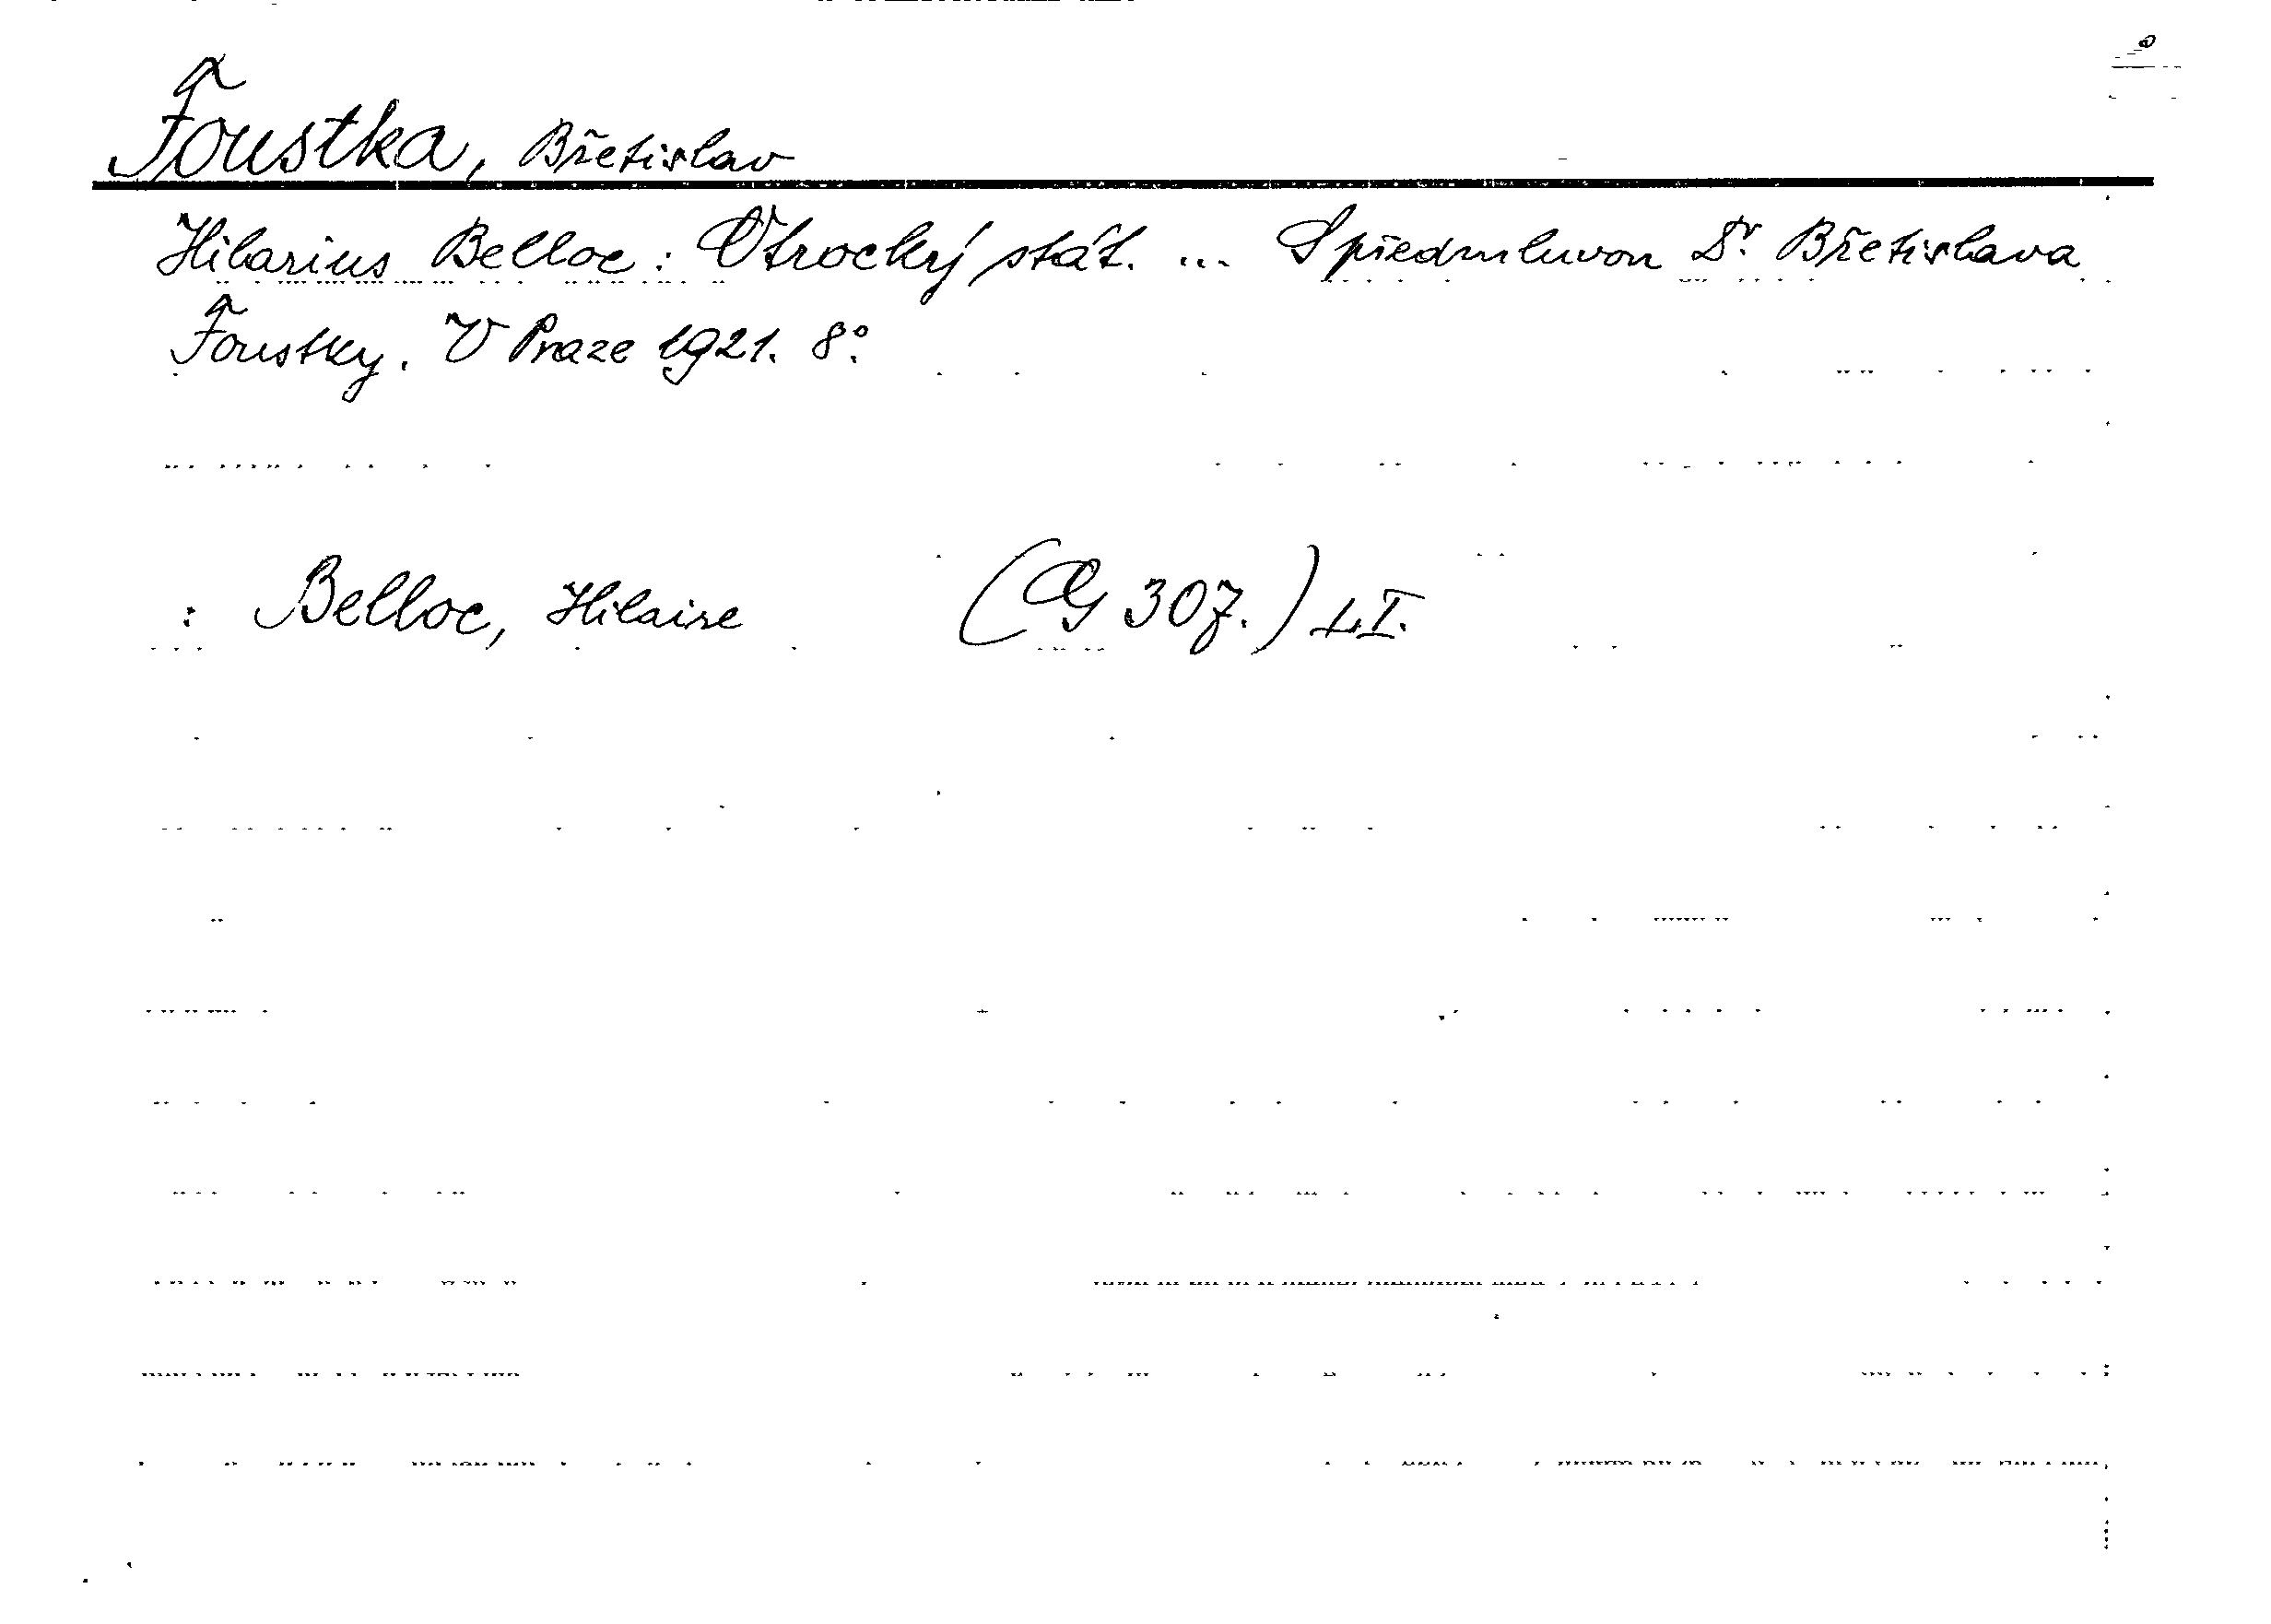 Foustka, Břetislav
Hilarius Belloc: Otrocký stát. ... S předmluvou Dr. Břetislava
Foustky. V Praze 1921. 8°.
: Belloc, Hilaire (G 307.) L.I.